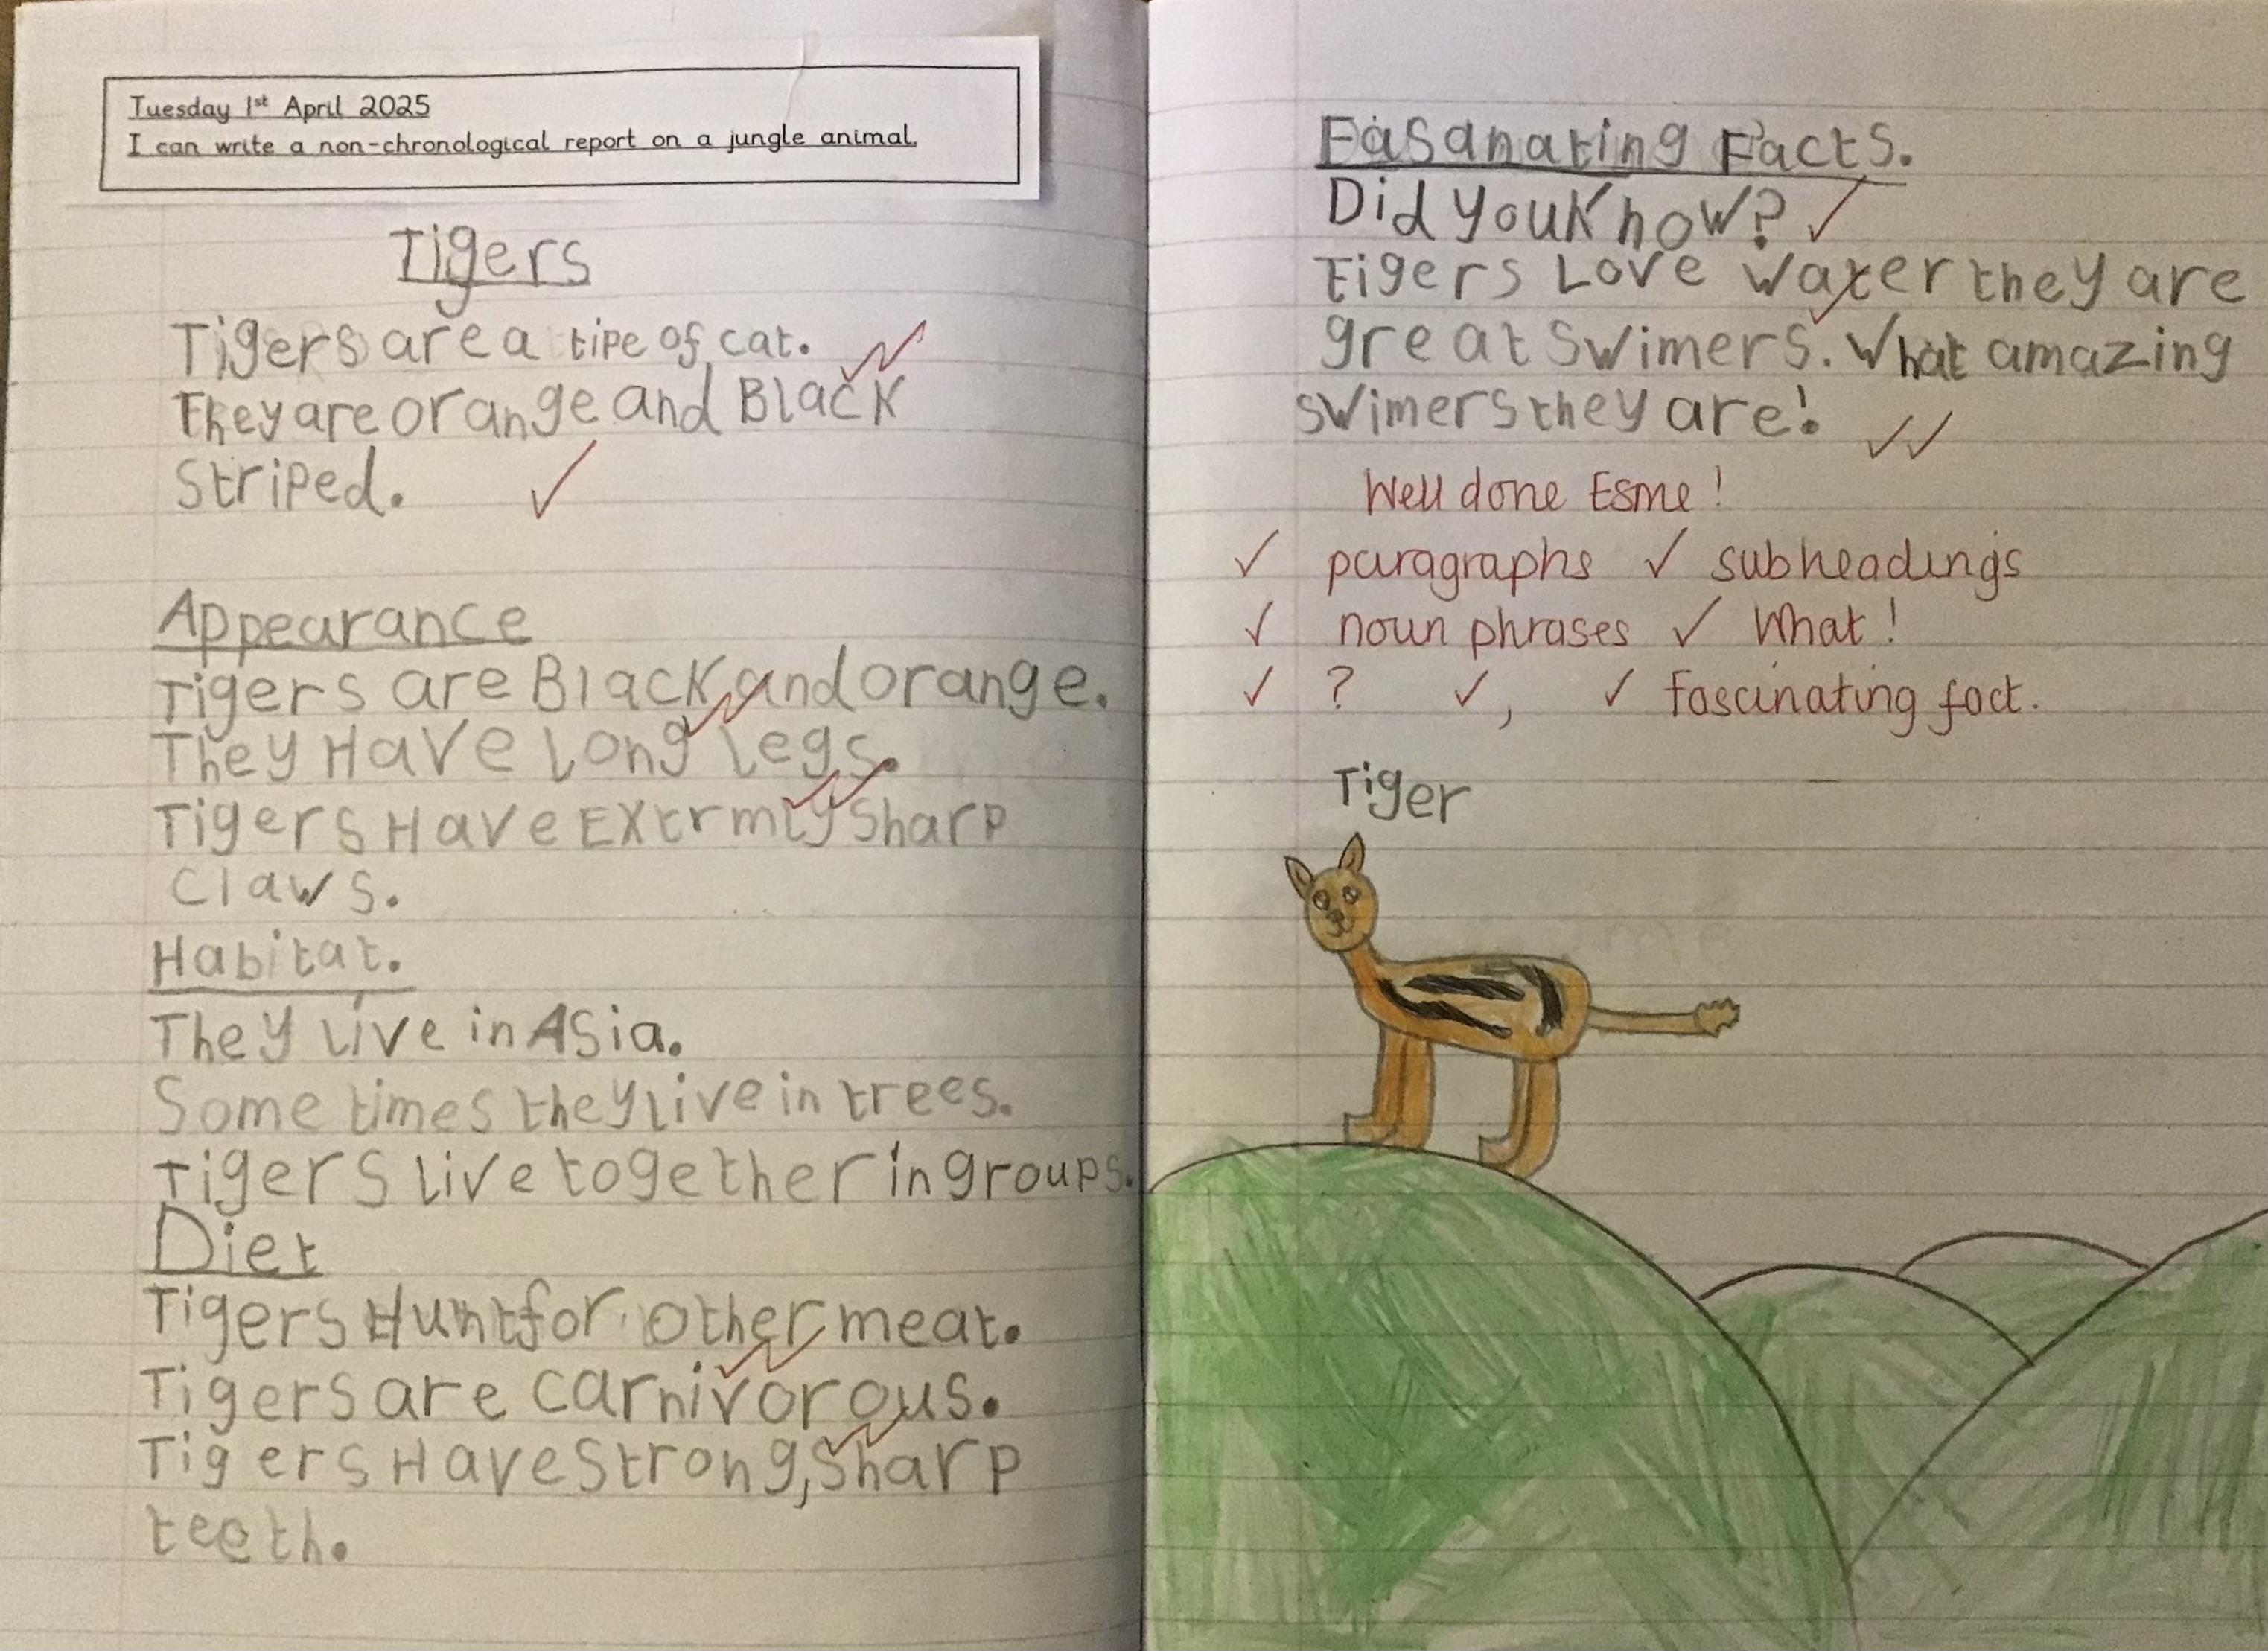 Tuesday 1st April 2025
I can write a non-chronological report on a jungle animal.
Tigers
Tigers are a tipe of cat.
They are orange and Black
Striped.
Appearance
Tigers are Black and orange.
They Have Long Legs.
Tigers Have Extrmly Sharp
Claws.
Habitat.
They Live in Asia.
Some times they Live in trees.
Tigers Live together in groups.
Diet
Tigers Hunt for other meat.
Tigers are carnivorous.
Tigers Have Strong, Sharp
teeth.
Fasanating Facts.
Did you Know? ✓
tigers Love water they are
great Swimers. What amazing
Swimers they are!
Well done Esme!
✓ paragraphs ✓ subheadings
✓ noun phrases ✓ What!
✓ ? ✓ , ✓ fascinating fact.
Tiger